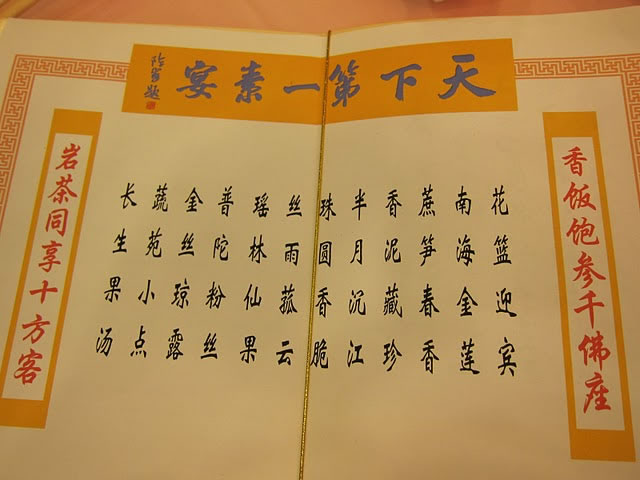 天下第一素宴
香饭饱参千佛座
花篮迎宾
南海金莲
蔗笋春香
香泥藏珍
半月沉江
珠圆香脆
丝雨菰云
瑶林仙果
普陀粉丝
金丝琼露
蔬苑小点
长生果汤
岩茶同享十方客